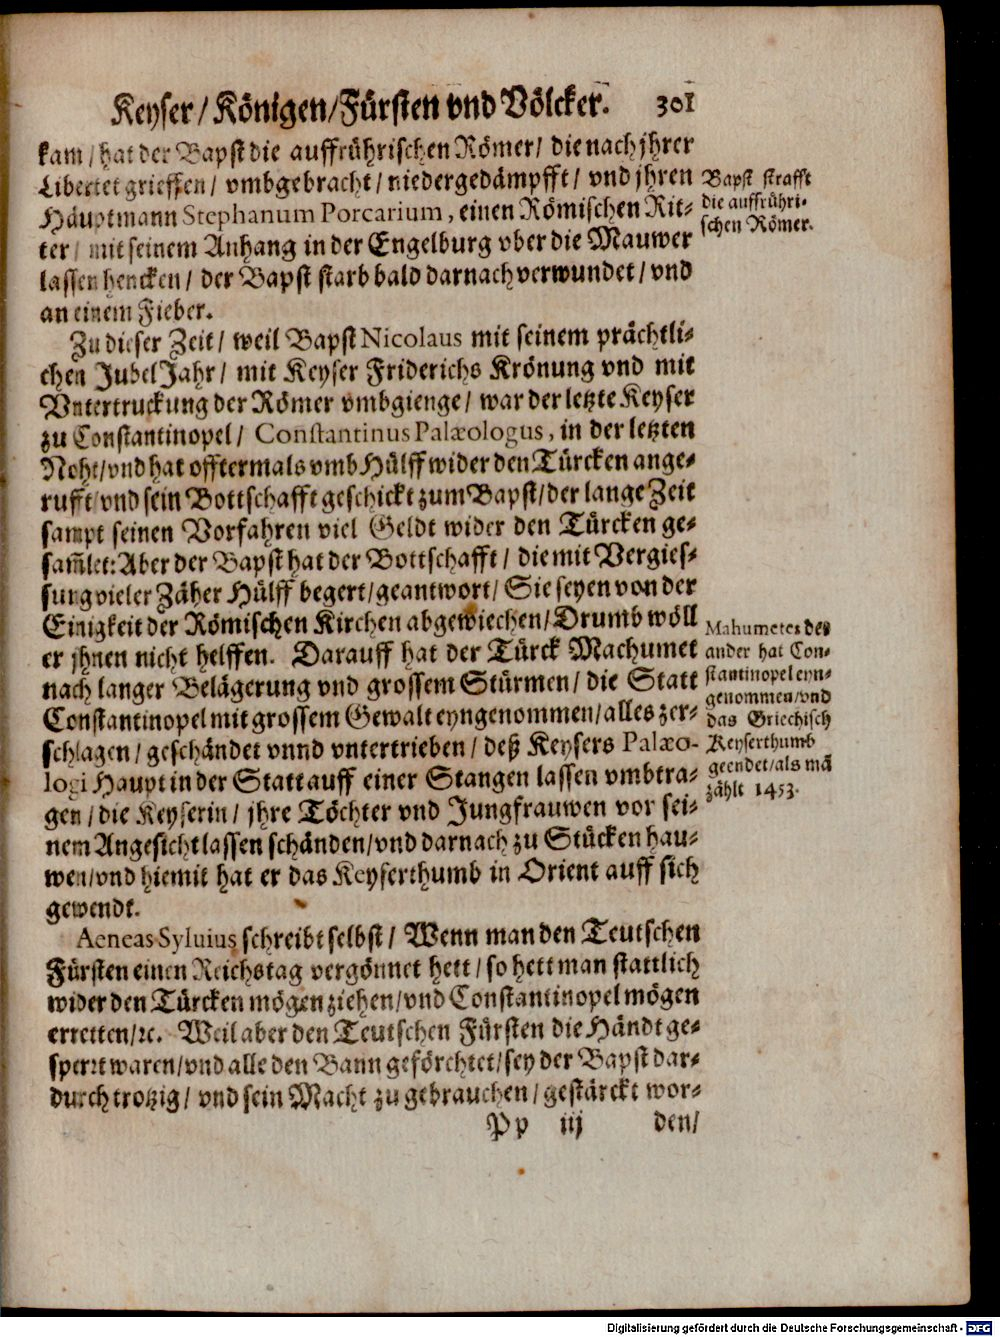 Keyser / Königen / Fürsten vnd Völcker. 301
kam / hat der Bapst die auffrührischen Römer / die nach jhrer
Libertet grieffen / vmbgebracht / niedergedämpfft / vnd jhren
Häuptmann Stephanum Porcarium, einen Römischen Rit-
ter / mit seinem Anhang in der Engelburg vber die Mauwer
lassen hencken / der Bapst starb bald darnach verwundet / vnd
an einem Fieber.
Bapst strafft
die auffrühri-
schen Römer.
Zu dieser Zeit / weil Bapst Nicolaus mit seinem prächtli-
chen JubelJahr / mit Keyser Friderichs Krönung vnd mit
Vntertruckung der Römer vmbgienge / war der letzte Keyser
zu Constantinopel / Constantinus Palæologus, in der letzten
Noht / vnd hat offtermals vmb Hülff wider den Türcken ange-
rufft / vnd sein Bottschafft geschickt zum Bapst / der lange Zeit
sampt seinen Vorfahren viel Geldt wider den Türcken ge-
sam̃let: Aber der Bapst hat der Bottschafft / die mit Vergies-
sung vieler Zäher Hülff begert / geantwort / Sie seyen von der
Einigkeit der Römischen Kirchen abgewiechen / Drumb wöll
er jhnen nicht helffen. Darauff hat der Türck Machumet
nach langer Belägerung vnd grossem Stürmen / die Statt
Constantinopel mit grossem Gewalt eyngenommen / alles zer-
schlagen / geschändet vnnd vntertrieben / deß Keysers Palæo-
logi Haupt in der Statt auff einer Stangen lassen vmbtra-
gen / die Keyserin / jhre Töchter vnd Jungfrauwen vor sei-
nem Angesicht lassen schänden / vnd darnach zu Stücken hau-
wen / vnd hiemit hat er das Keyserthumb in Orient auff sich
gewendt.
Mahumetes der
ander hat Con-
stantinopel eyn-
genommen / vnd
das Griechisch
Keyserthumb
geendet / als mã
zählt 1453.
Aeneas Syluius schreibt selbst / Wenn man den Teutschen
Fürsten einen Reichstag vergönnet hett / so hett man stattlich
wider den Türcken mögen ziehen / vnd Constantinopel mögen
erretten / ꝛc. Weil aber den Teutschen Fürsten die Händt ge-
sperrt waren / vnd alle den Bann geförchtet / sey der Bapst dar-
durch trotzig / vnd sein Macht zu gebrauchen / gestärckt wor-
Pp iij den /
Digitalisierung gefördert durch die Deutsche Forschungsgemeinschaft - DFG